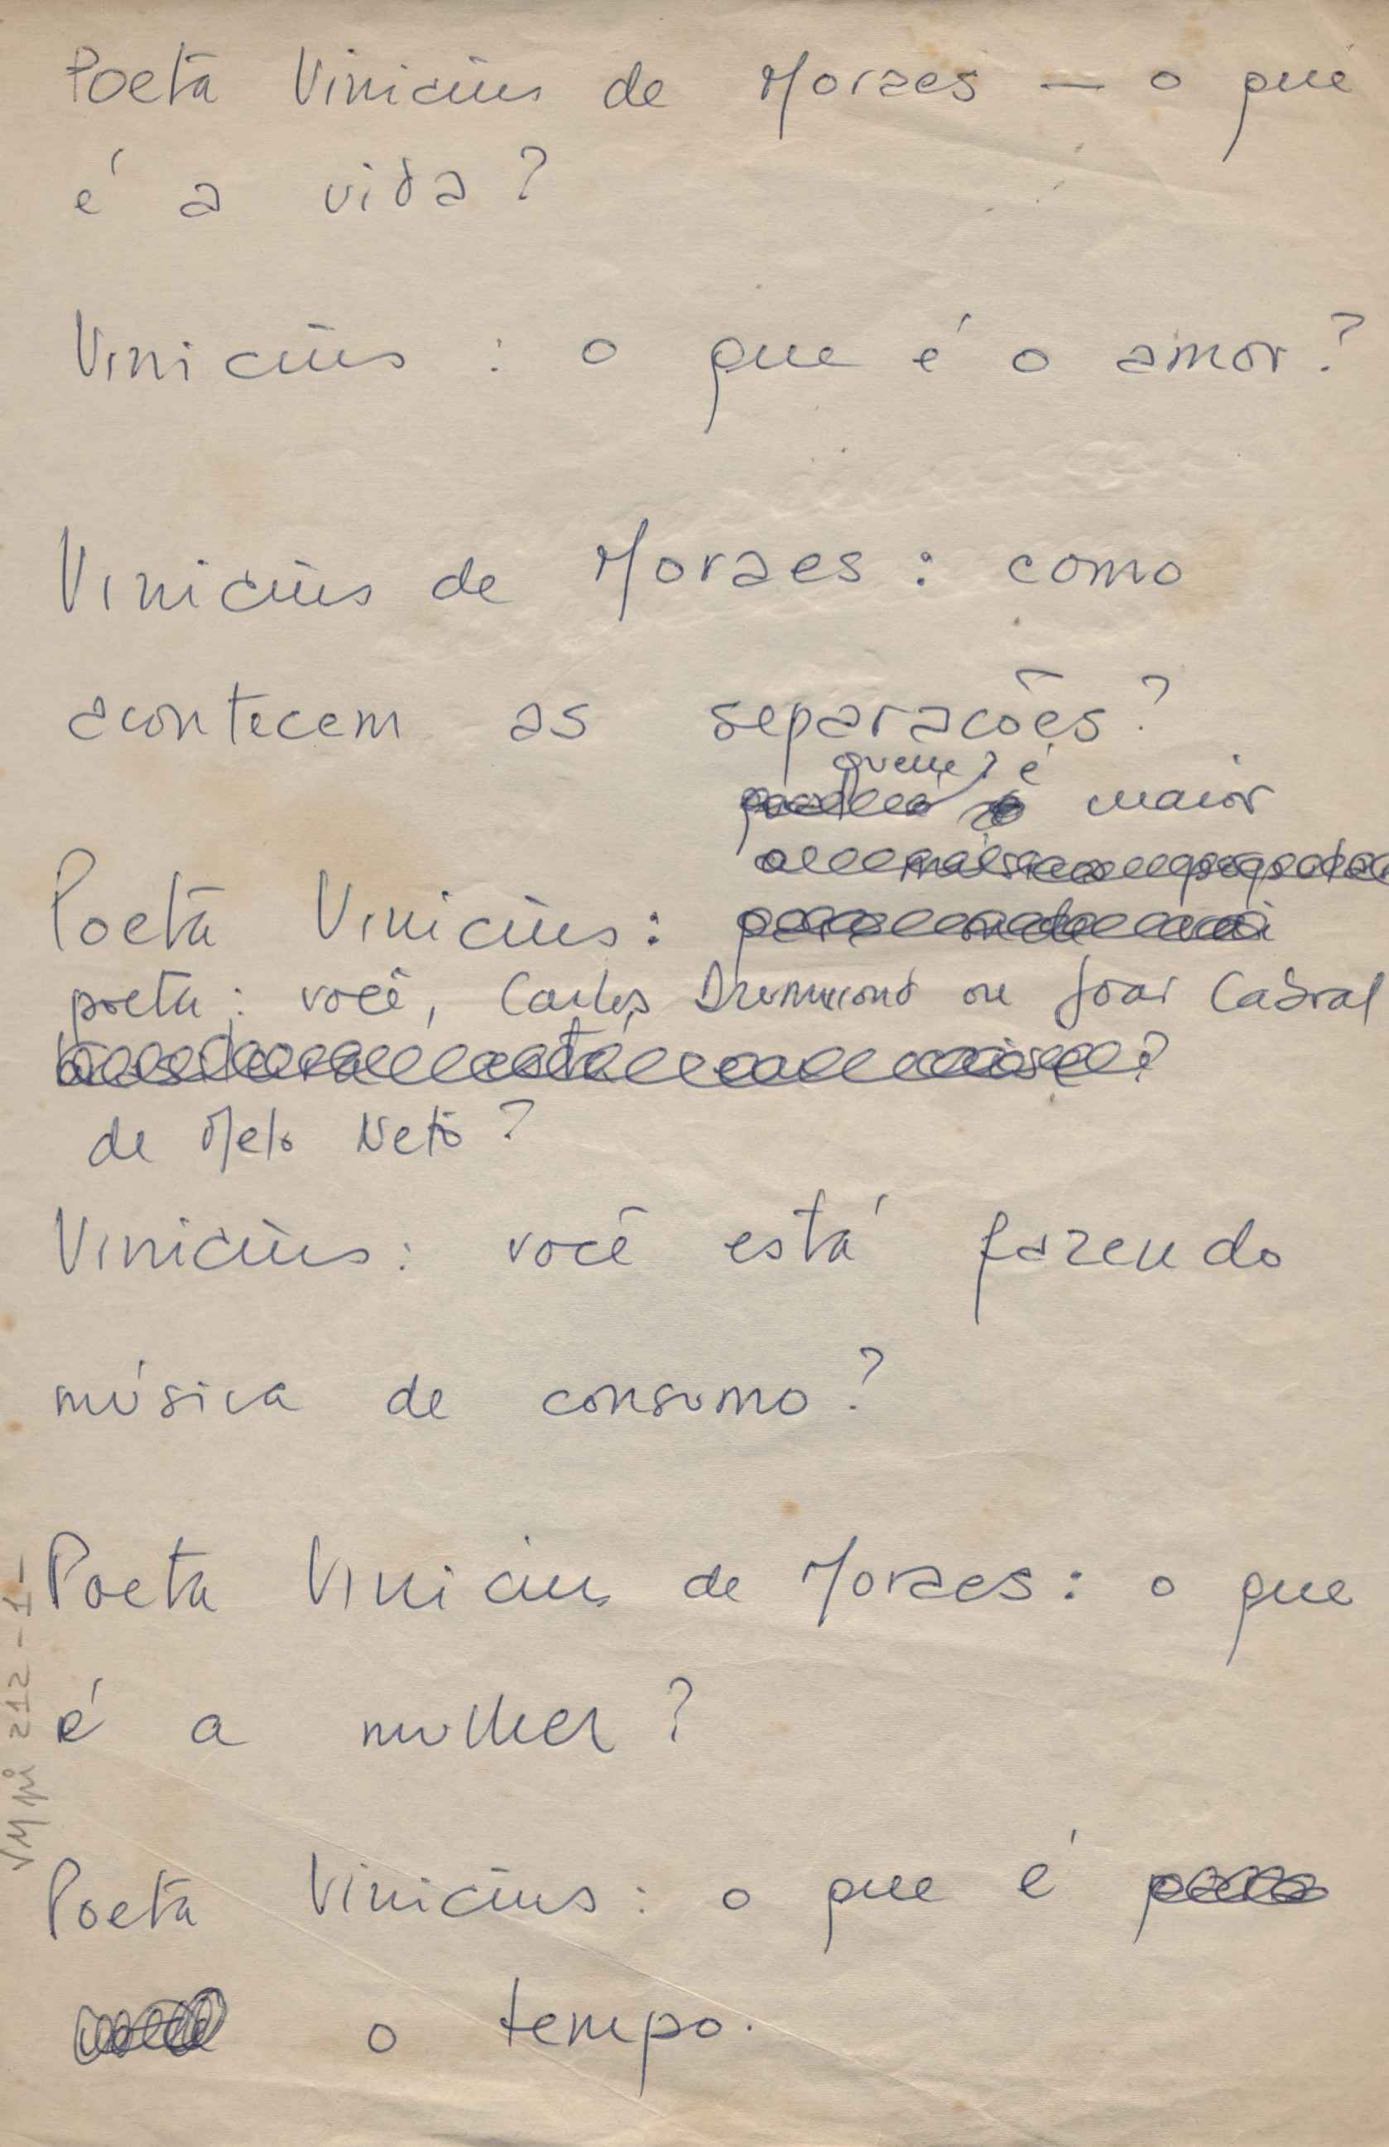 Poeta Vinicius de Moraes — o que
é a vida?
Vinicius : o que é o amor?
Vinicius de Moraes : como
acontecem as separacões?
quem é
maior
Poeta Vinicius :
poeta : você, Carlos Drummond ou Joao Cabral
de Melo Neto?
Vinicius : você está fazendo
música de consumo?
Poeta Vinicius de Moraes : o que
é a mulher?
Poeta Vinicius : o que é
o tempo.
VMpi 212-1-